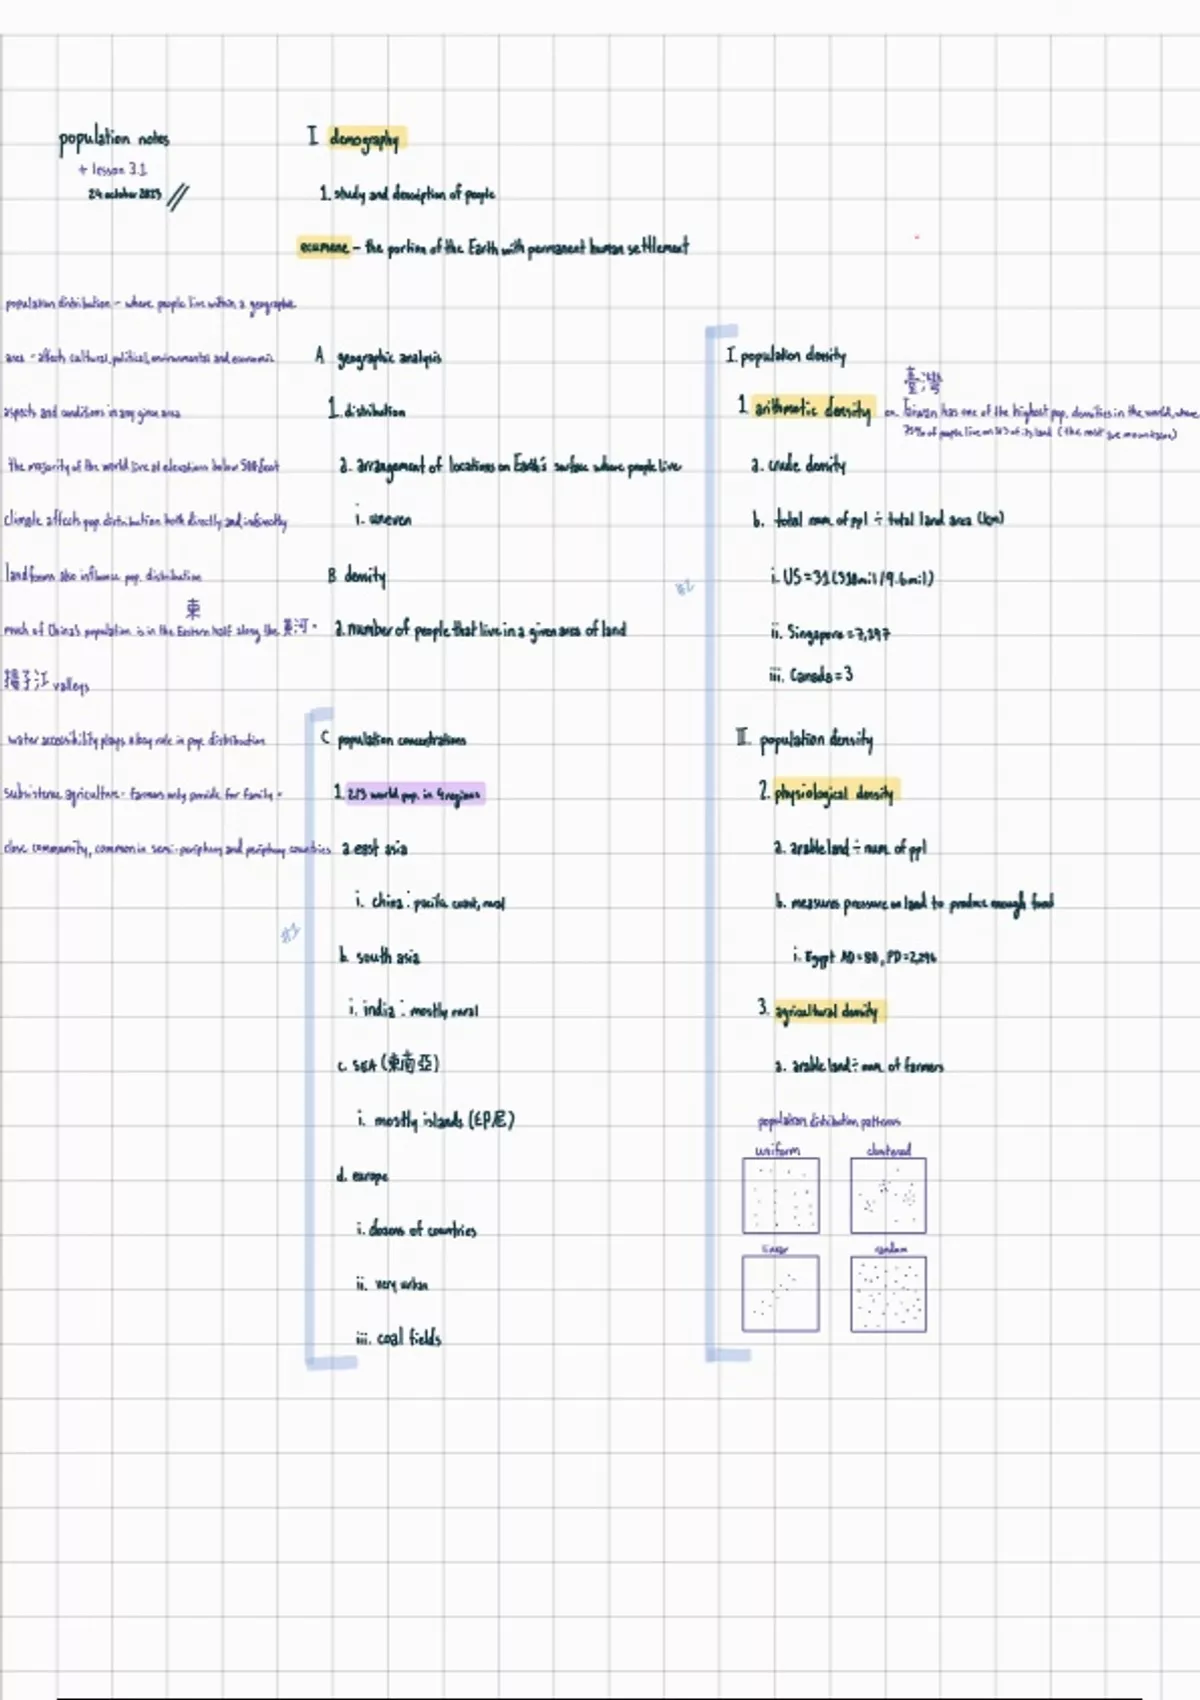 population notes
+ lesson 3.1
24 october 2023
I demography
1. study and description of people
ecumene - the portion of the Earth with permanent human settlement
population distribution - where people live within a geographic
area - affects cultural, political, environmental and economic
aspects and conditions in any given area
the majority of the world live at elevations below 500 feet
climate affects pop. distribution both directly and indirectly
landforms also influence pop. distribution
東
much of China's population is in the Eastern half along the 黃河 -
揚子江 valleys
water accessibility plays a key role in pop. distribution
subsistence agriculture - farmers only provide for family +
close community, common in semi-periphery and periphery countries
A geographic analysis
1. distribution
a. arrangement of locations on Earth's surface where people live
i. uneven
B density
a. number of people that live in a given area of land
C population concentrations
1. 2/3 world pop. in 4 regions
a. east asia
i. china : pacific coast, rural
b. south asia
i. india : mostly rural
c. SEA (東南亞)
i. mostly islands (印尼)
d. europe
i. dozens of countries
ii. very urban
iii. coal fields
I. population density
臺灣
1. arithmetic density ex. Taiwan has one of the highest pop. densities in the world, where
75% of people live on 1/3 of its land (the rest are mountains)
a. crude density
b. total num. of ppl ÷ total land area (km)
i. US = 31 (310mil/9.6mil)
ii. Singapore = 7,197
iii. Canada = 3
II. population density
2. physiological density
a. arable land ÷ num. of ppl
b. measures pressure on land to produce enough food
i. Egypt AD = 80, PD = 2,296
3. agricultural density
a. arable land ÷ num. of farmers
population distribution patterns
uniform clustered
linear random